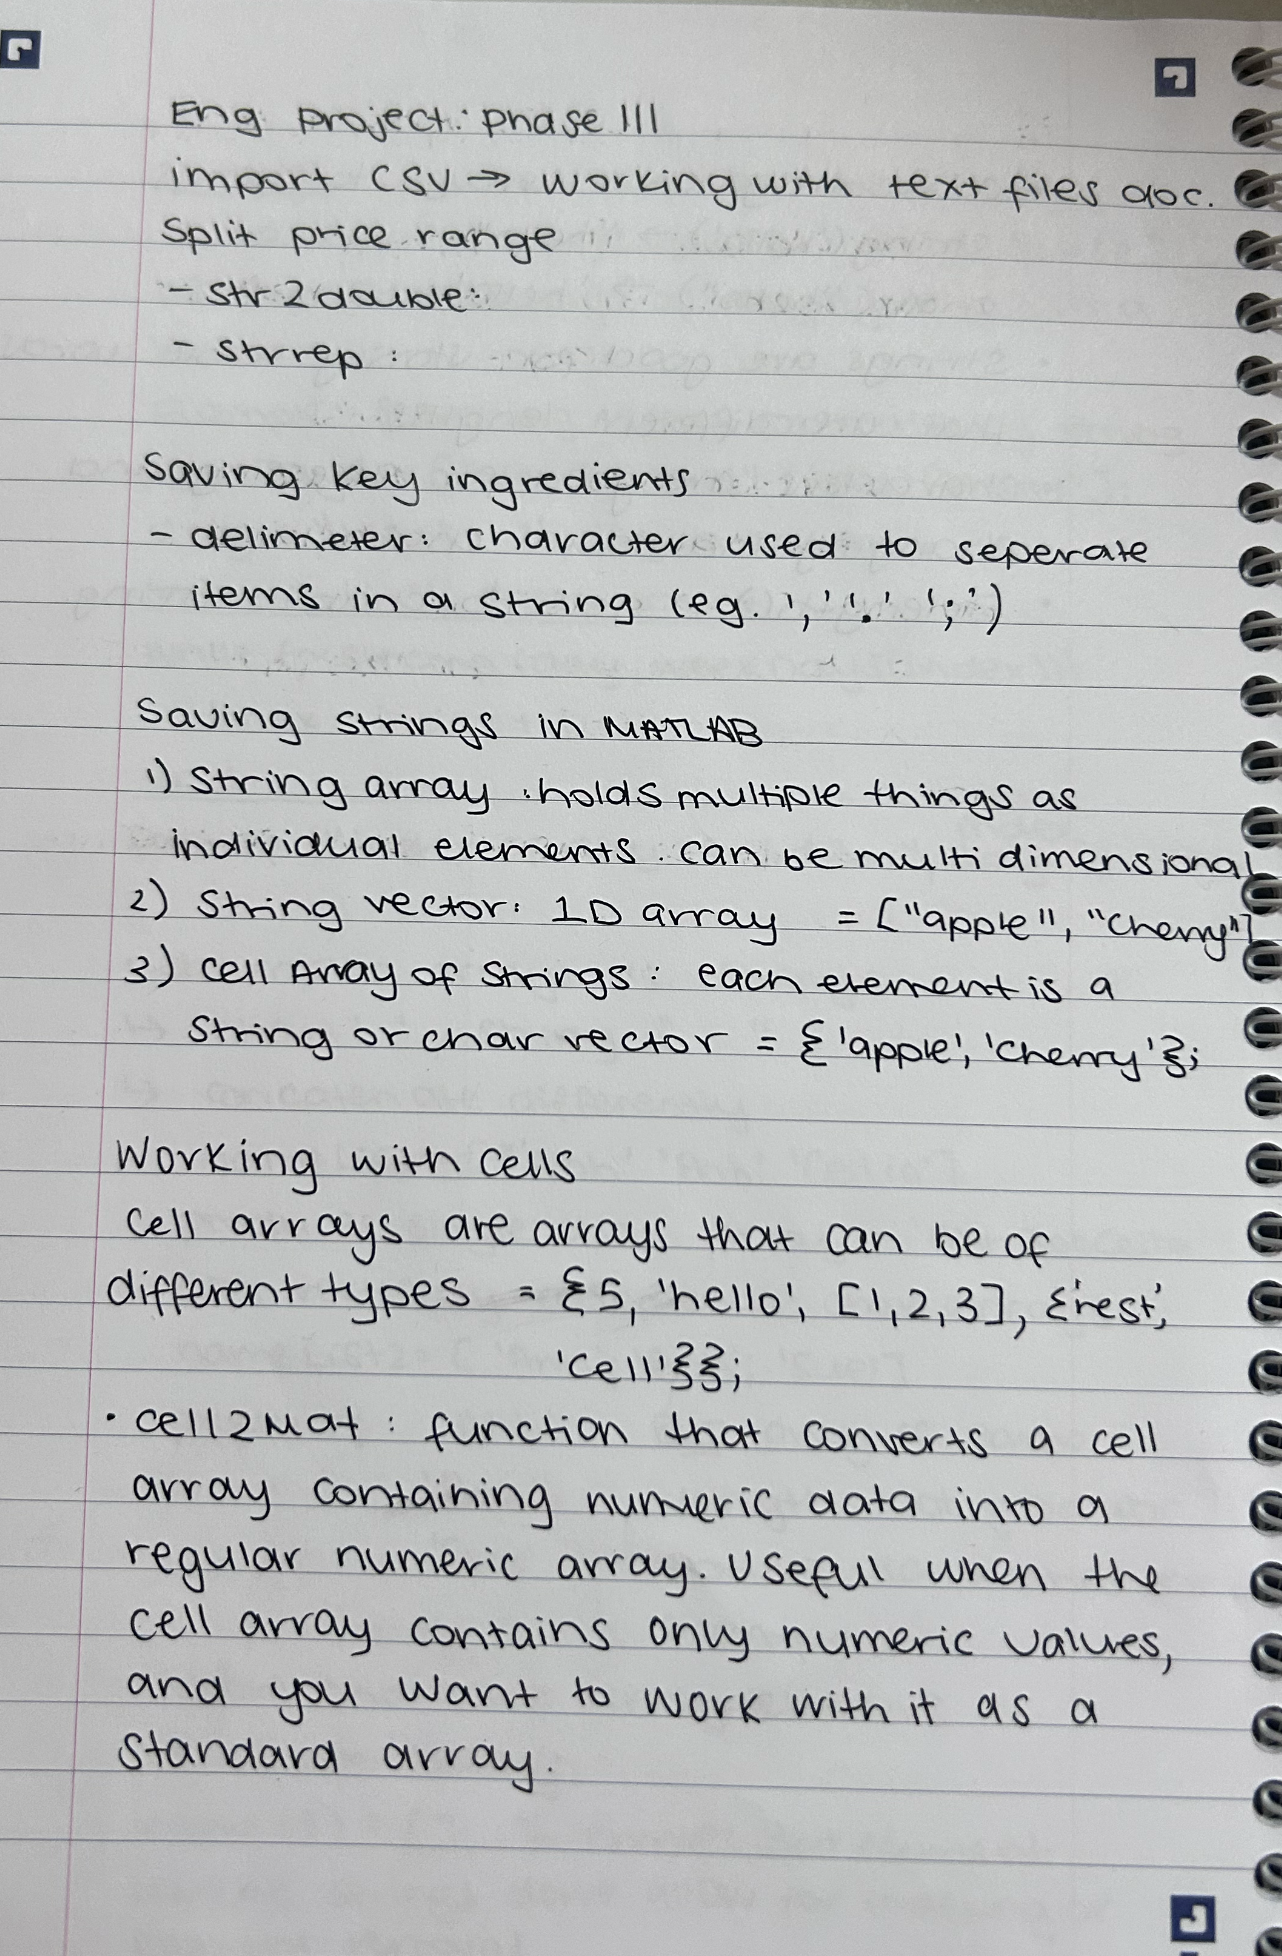 Eng project: phase III
import CSV → working with text files doc.
Split price range
- str2double:
- strrep:
Saving key ingredients
- delimeter: character used to seperate
items in a string (eg. ',' '.' ';')
Saving strings in MATLAB
1) String array : holds multiple things as
individual elements. can be multi dimensional
2) String vector: 1D array = ["apple", "cherry"]
3) Cell Array of Strings: each element is a
string or char vector = {'apple', 'cherry'};
Working with cells
cell arrays are arrays that can be of
different types = {5, 'hello', [1,2,3], {'nest',
'cell'}};
• cell2Mat: function that converts a cell
array containing numeric data into a
regular numeric array. Useful when the
cell array contains only numeric values,
and you want to work with it as a
standard array.